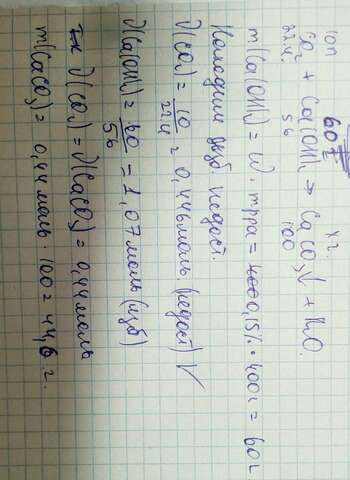 10л 60г х г.
CO₂ + Ca(OH)₂ → CaCO₃↓ + H₂O.
22,4. 56 100
m(Ca(OH)₂ = W. mр-ра = 0,15% · 400г = 60г
Находим изб недост.
ν(CO₂) = 10/22,4 = 0,446 моль (недост) √
ν(Ca(OH)₂ = 60/56 = 1,07 моль (изб)
ν(CO₂) = ν(CaCO₃) = 0,44 моль
m(CaCO₃) = 0,44 моль · 100 = 44,6 г.